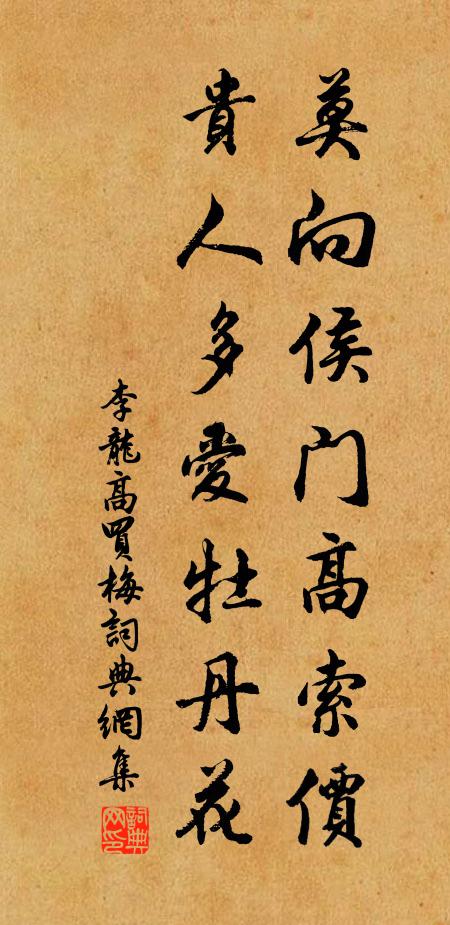 莫向侯門高索價
貴人多愛牡丹花
李龍高買梅詞典網集
詞典網印